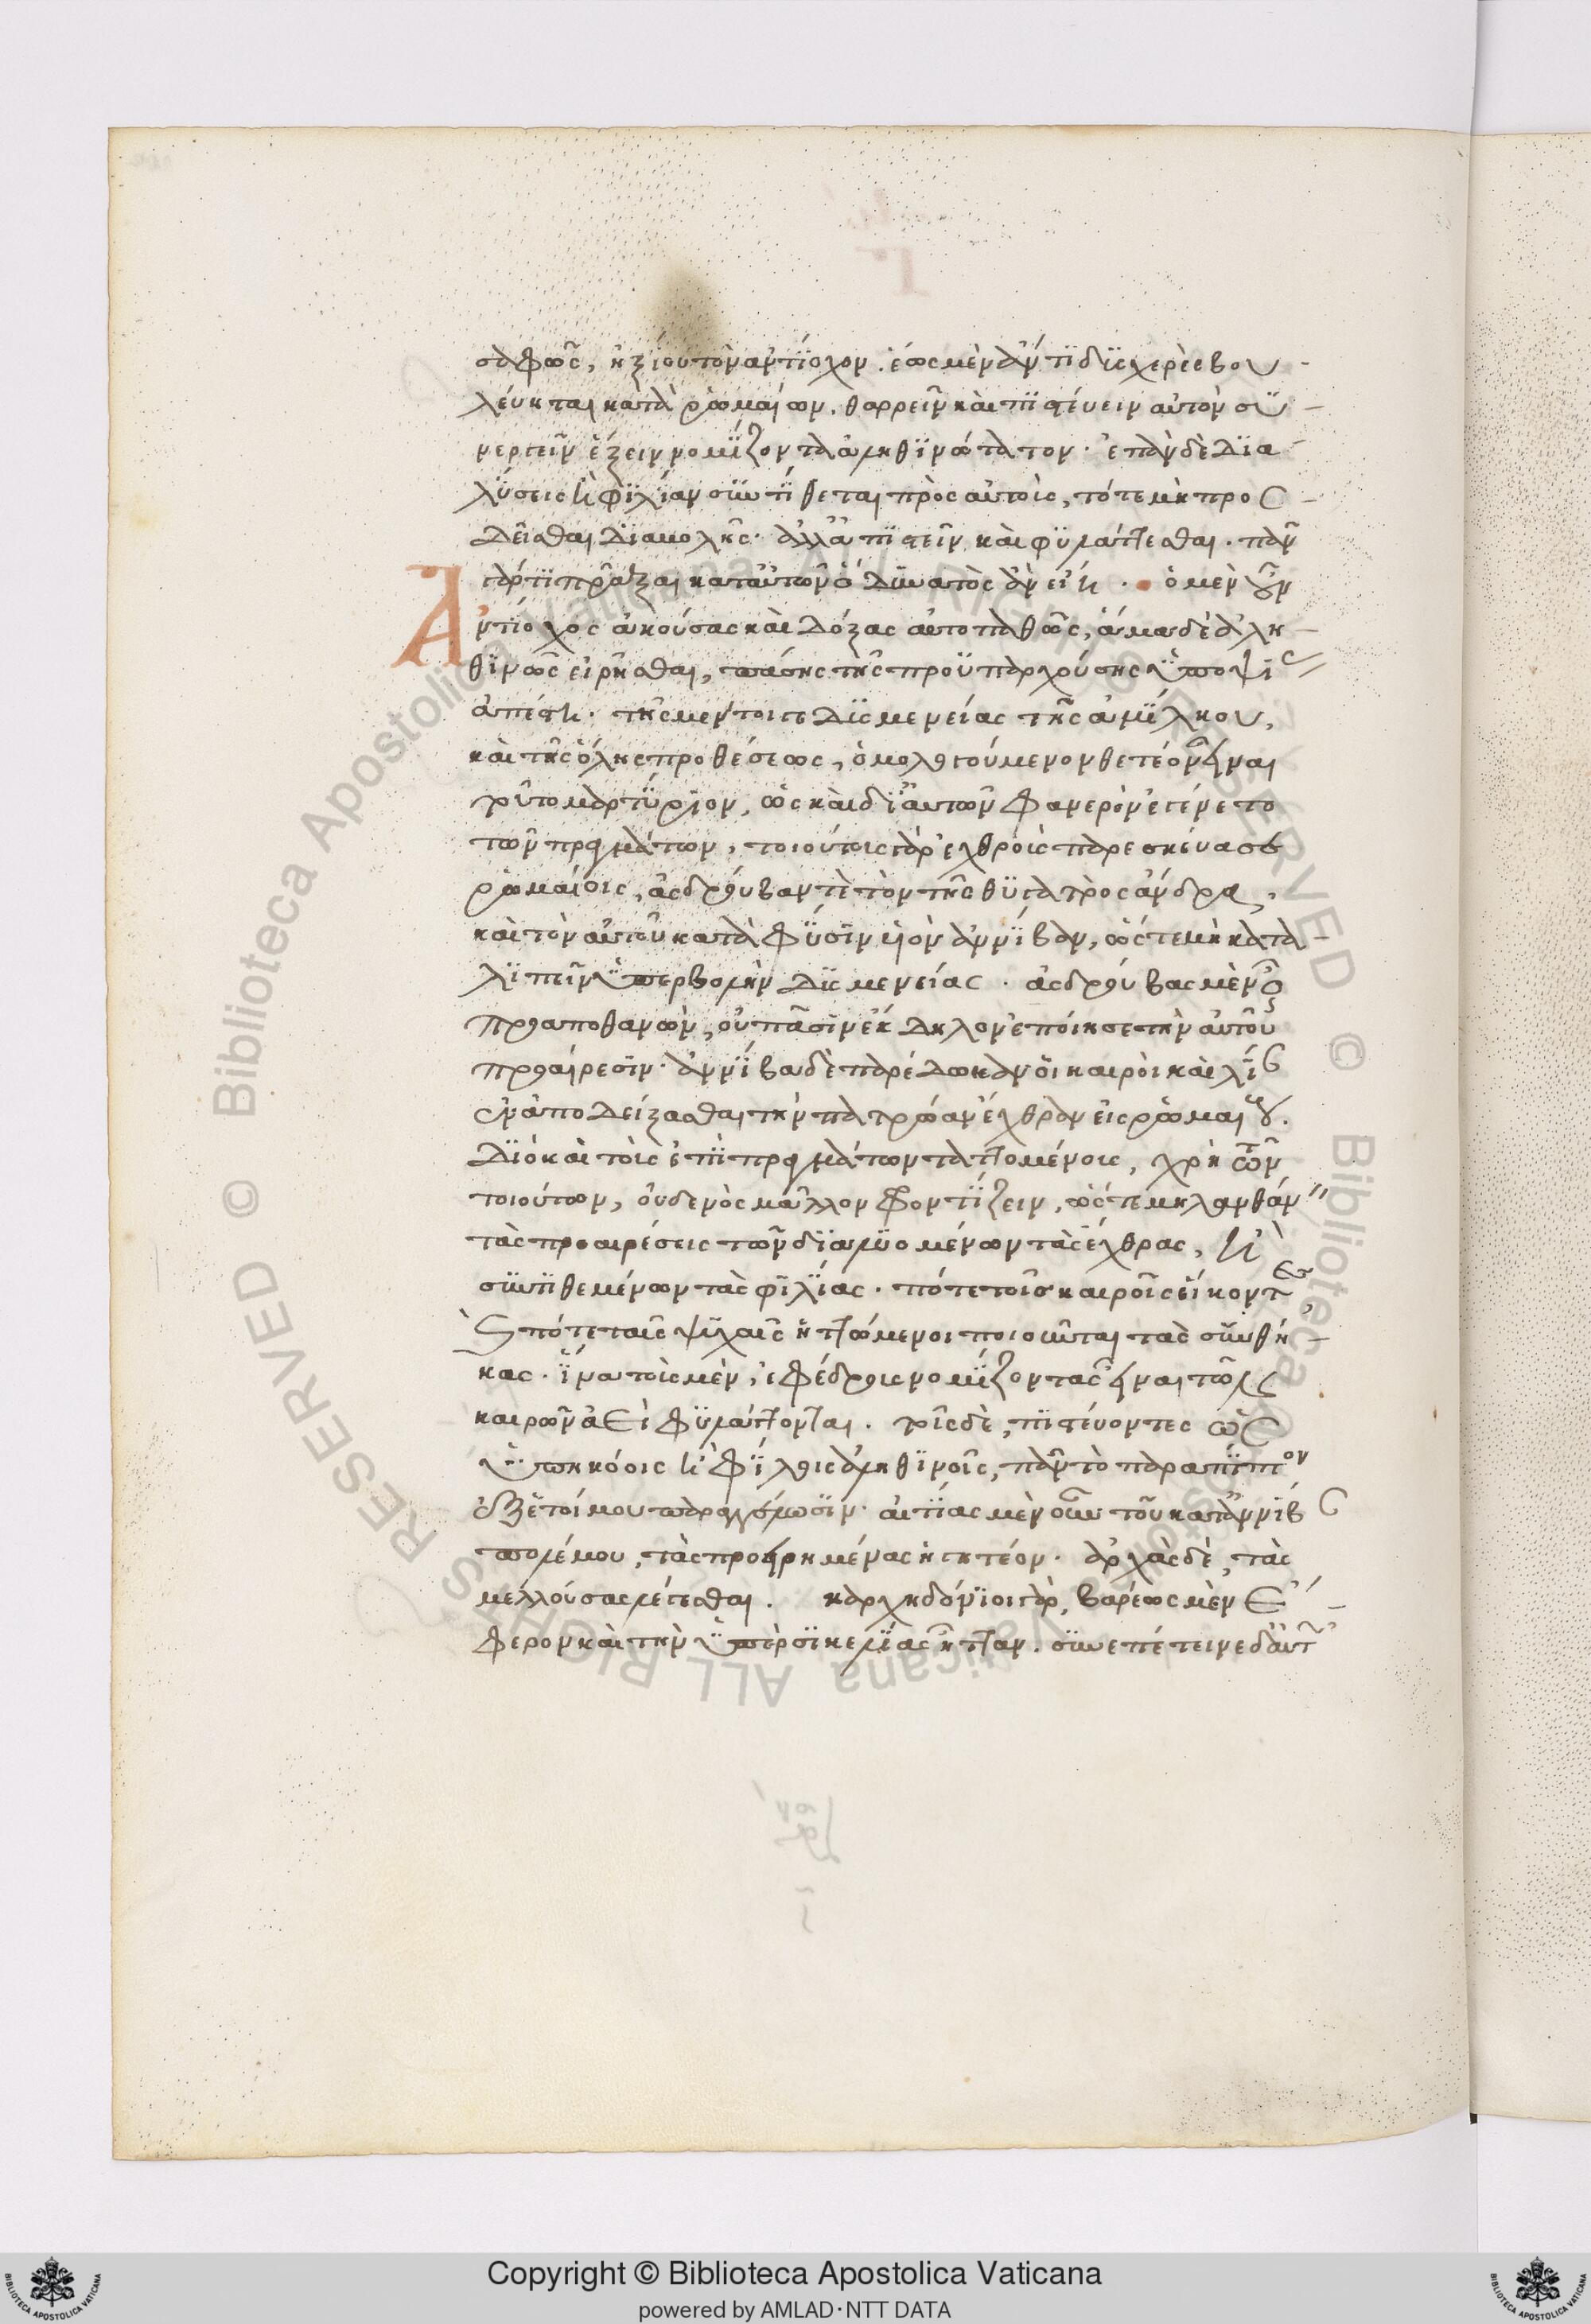 σαφῶς, ἠξίου τὸν ἀντίοχον. ἕως μὲν ἄν τι δυσχερὲς βου
λέυηται κατὰ ῥωμαίων. θαρρεῖν καὶ πιστέυειν αὐτὸν συ
νεργεῖν ἕξειν νομίζοντα ἀληθινώτατον. ἐπὰν δὲ δια
λύσεις ἢ φιλίαν συντίθεται πρὸς αὐτοὺς, τότε μὴ προσ
δεῖσθαι διαβολῆς. ἀλλ' ἀπιστεῖν καὶ φυλάττεσθαι. πᾶν
γάρ τι πρᾶξαι κατ' αὐτῶν ὃ δυνατὸς ἂν εἴη. ὁ μὲν οὖν
Ἀντίοχος ἀκούσας καὶ δόξας αὐτοπαθῶς, ἅμα δὲ ἀλη
θινῶς εἰρῆσθαι, πάσης τῆς προϋπαρχούσης ὑποψίας
ἀπέστη. τῆς μέντοι γε δυσμενείας τῆς ἀμίλκου,
καὶ τῆς ὅλης προθέσεως, ὁμολογούμενον θετέον εἶναι
τοῦτο μαρτύριον, ὡς καὶ δι' αὐτῶν φανερὸν ἐγένετο
τῶν πραγμάτων. τοιούτους γὰρ ἐχθροὺς παρεσκέυασε
ῥωμαίοις, ἀσδρούβαν τὲ τὸν τῆς θυγατρὸς ἄνδρα,
καὶ τὸν αὑτοῦ κατὰ φύσιν υἱὸν ἀννίβαν, ὥστε μὴ κατα
λιπεῖν ὑπερβολὴν δυσμενείας. ἀσδρούβας μὲν οὖν
προαποθανὼν, οὐ πᾶσιν ἔκδηλον ἐποίησε τὴν αὑτοῦ
προαίρεσιν. ἀννίβα δὲ παρέδωκαν οἱ καιροὶ καὶ λίαν
ἐναποδείξασθαι τὴν πατρῴαν ἔχθραν εἰς ῥωμαίους.
διὸ καὶ τοὺς ἐπὶ πραγμάτων ταττομένους, χρὴ τῶν
τοιούτων, οὐδενὸς μᾶλλον φροντίζειν, ὥστε μὴ λανθάνειν
τὰς προαιρέσεις τῶν διαλυομένων τὰς ἔχθρας, ἢ
συντιθεμένων τὰς φιλίας. πότε τοῖς καιροῖς εἴκοντες
καὶ πότε ταῖς ψυχαῖς ἡττώμενοι ποιοῦνται τὰς συνθή
κας. ἵνα τοὺς μὲν, ἐφέδρους νομίζοντας εἶναι τῶν
καιρῶν ἀεὶ φυλάττονται. τοῖς δὲ, πιστέυοντες ὡς
ὑπηκόοις ἢ φίλοις ἀληθινοῖς, πᾶν τὸ παραπῖπτον
ἐξ ἑτοίμου παραγγέλλωσιν. αἰτίας μὲν οὖν τοῦ κατ' ἀννίβαν
πολέμου, τὰς προειρημένας ἡγητέον. ἀρχὰς δὲ, τὰς
μελλούσας λέγεσθαι. καρχηδόνιοι γὰρ, βαρέως μὲν ἔ
φερον καὶ τὴν ὑπὲρ σικελίας ἧτταν. συνεπέτεινε δ' αὐτῶν